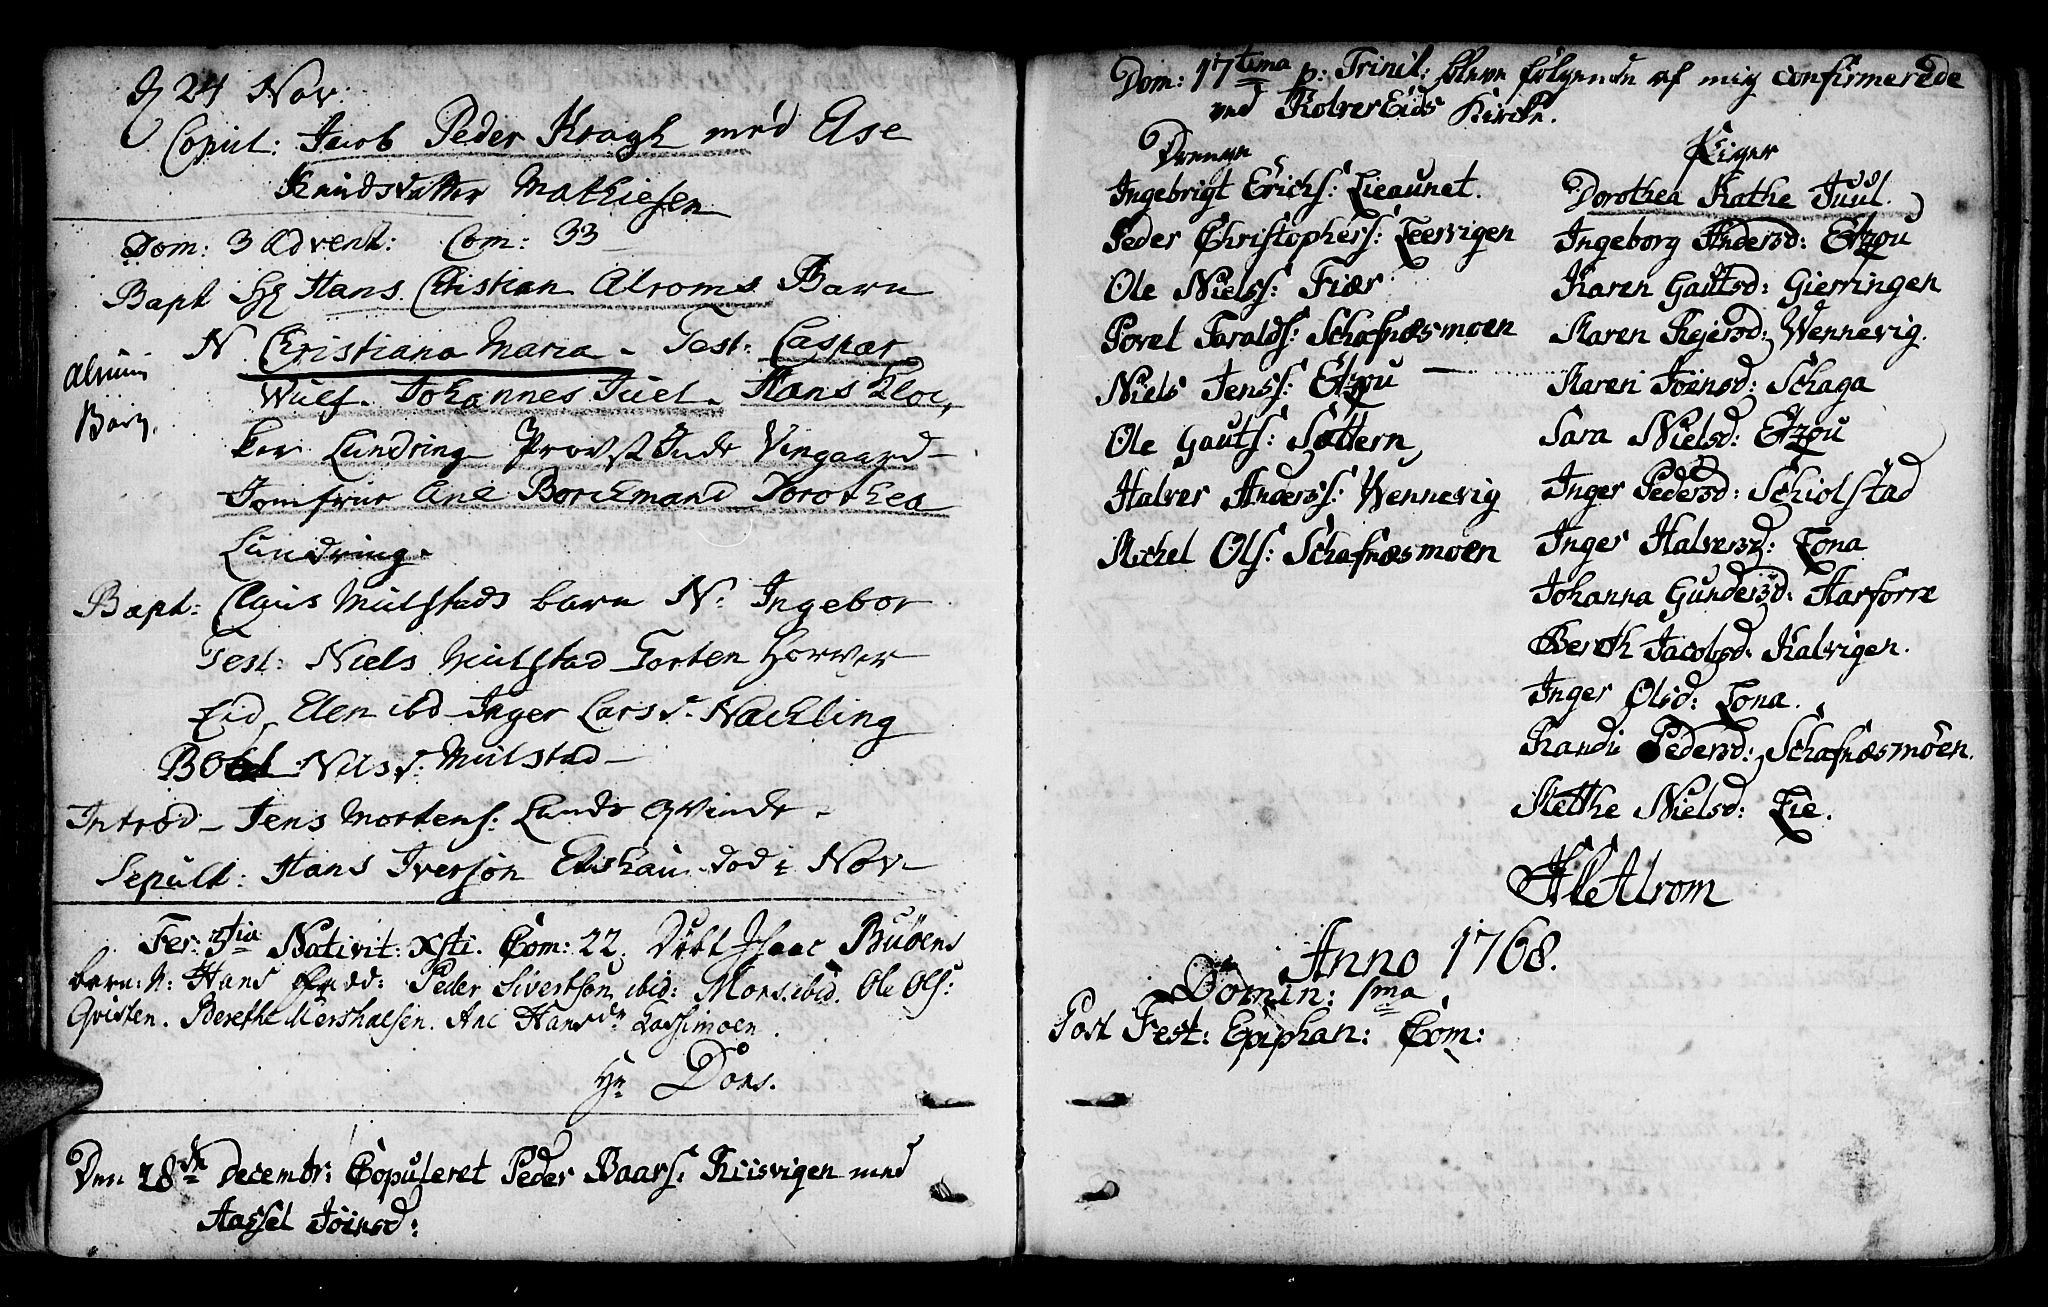 D 24 Nov:
Copul: Jacob Peder Kragh med Else
Knudsdatter Mathiesen
Dom: 3 Advent: Com: 33
Bapt Hr Hans Christian Alroms Barn
N Christiana Maria - Test: Caspar
Alrum
Barn.
Wulf. Johannes Juel. Hans Kloc,
ker Lundring Provst Inde Vingaard
Jomfrue Ane Borchmand Dorothea
Lundring.
Bapt: Claus Mulstads barn N: Ingebor
Test: Niels Mulstad Torten Horver
Eid, Elen ibd Inger Larsd. Nachling
Bolel Nilsd: Mulstad
Introd - Jens Mortens: Lunds Qvinde -
Sepult: Hans Iverson Elshau död i Nov
Fer: 3tia Nativit: Xsti. Com: 22. Döbt Isaac Buöens
barn: N: Hans Fadd: Peder Sivertson ibid: Mons ibid. Ole Ols:
Qvisten. Berethe Mershaesen. Ane Hansdr Lassemoen.
Hr Döns.
Den 28de Decembr: Copuleret Peder Baars: Kiisvigen med
Aassel Joensd:
Dom: 17tima p: Trinit: bleve følgende af mig confirmerede
ved KolverEids Kirke.
Drenge
Ingebrigt Erichs: Lieaunet.
Peder Christophers: Leervigen
Ole Niels: Fiær
Povel Faralds: Schafnæsmoen
Niels Jens: Etzou
Ole Gauts: Sættern
Halver Anders: Wennevig
Michel Ols: Schafnæsmoen
Piger
Dorothea Kathe Juul.
Ingeborg Andersd: Etzou
Karen Gautsd: Gierringen
Maren Rejersd: Wennevig.
Karen Joensd: Schaga
Sara Nielsd: Etzou
Inger Pedersd: Schiolstad
Inger Halversd: Fona
Johanna Gundersd: Harforre
Bereth Jacobsd: Kalvigen.
Inger Olsd: Fona.
Randi Pedersd: Schafnæsmöen.
Mette Nielsd: Lie.
Alrom
Anno 1768.
Domin: 1ma
Post Fest: Epiphan: Com: